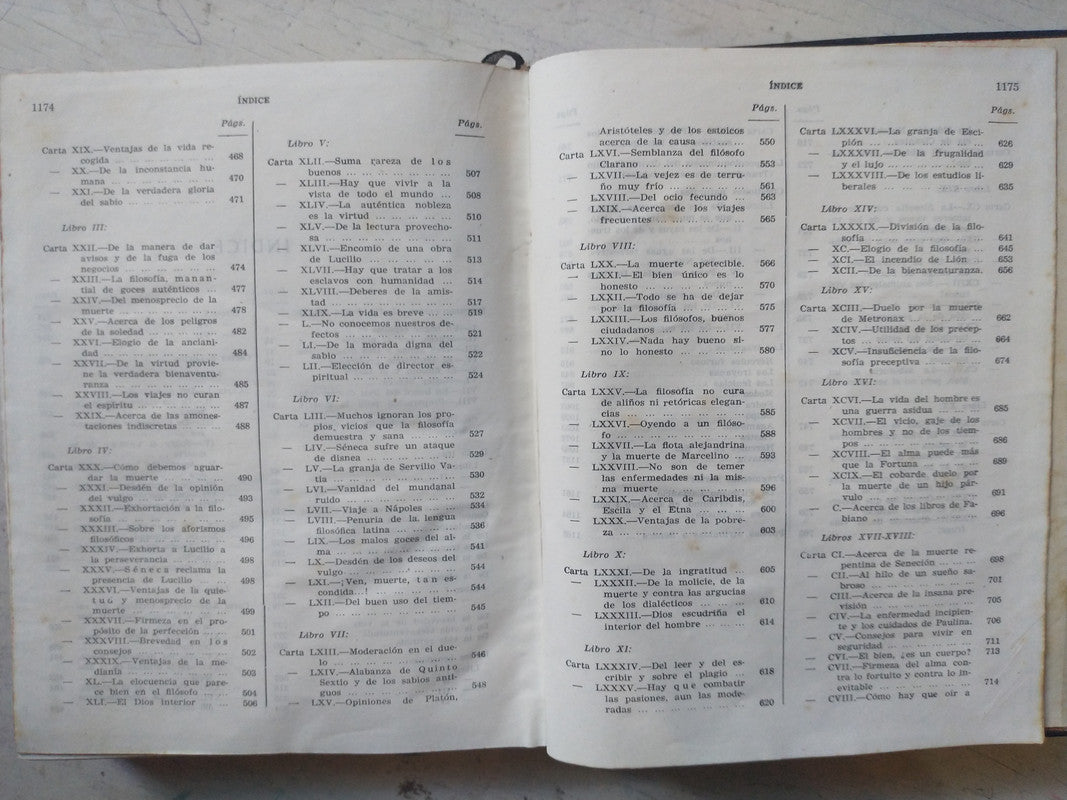 1174
ÍNDICE
Págs.
Carta XIX.—Ventajas de la vida re-
cogida ... ... ... ... ... ... 468
— XX.—De la inconstancia hu-
mana ... ... ... ... ... ... 470
— XXI.—De la verdadera gloria
del sabio ... ... ... ... ... 471
Libro III:
Carta XXII.—De la manera de dar
avisos y de la fuga de los
negocios ... ... ... ... ... 474
— XXIII.—La filosofía, manan-
tial de goces auténticos ... 477
— XXIV.—Del menosprecio de la
muerte ... ... ... ... ... ... 478
— XXV.—Acerca de los peligros
de la soledad ... ... ... ... 482
— XXVI.—Elogio de la anciani-
dad ... ... ... ... ... ... ... 484
— XXVII.—De la virtud provie-
ne la verdadera bienaventu-
ranza ... ... ... ... ... ... 485
— XXVIII.—Los viajes no curan
el espíritu ... ... ... ... ... 487
— XXIX.—Acerca de las amones-
taciones indiscretas ... ... 488
Libro IV:
Carta XXX.—Cómo debemos aguar-
dar la muerte ... ... ... ... 490
— XXXI.—Desdén de la opinión
del vulgo ... ... ... ... ... 493
— XXXII.—Exhortación a la filo-
sofía ... ... ... ... ... ... 495
— XXXIII.—Sobre los aforismos
filosóficos ... ... ... ... ... 496
— XXXIV.—Exhorta a Lucilio a
la perseverancia ... ... ... 498
— XXXV.—Séneca reclama la
presencia de Lucilio ... ... 498
— XXXVI.—Ventajas de la quie-
tud y menosprecio de la
muerte ... ... ... ... ... ... 499
— XXXVII.—Firmeza en el pro-
pósito de la perfección ... 501
— XXXVIII.—Brevedad en los
consejos ... ... ... ... ... 502
— XXXIX.—Ventajas de la me-
dianía ... ... ... ... ... ... 503
— XL.—La elocuencia que pare-
ce bien en el filósofo ... ... 504
— XLI.—El Dios interior ... ... 506
Págs.
Libro V:
Carta XLII.—Suma rareza de los
buenos ... ... ... ... ... ... 507
— XLIII.—Hay que vivir a la
vista de todo el mundo ... 508
— XLIV.—La auténtica nobleza
es la virtud ... ... ... ... 510
— XLV.—De la lectura provecho-
sa ... ... ... ... ... ... ... 511
— XLVI.—Encomio de una obra
de Lucilio ... ... ... ... ... 513
— XLVII.—Hay que tratar a los
esclavos con humanidad ... 514
— XLVIII.—Deberes de la amis-
tad ... ... ... ... ... ... ... 517
— XLIX.—La vida es breve ... ... 519
— L.—No conocemos nuestros de-
fectos ... ... ... ... ... ... 521
— LI.—De la morada digna del
sabio ... ... ... ... ... ... 522
— LII.—Elección de director es-
piritual ... ... ... ... ... ... 524
Libro VI:
Carta LIII.—Muchos ignoran los pro-
pios vicios que la filosofía
demuestra y sana ... ... ... 527
— LIV.—Séneca sufre un ataque
de disnea ... ... ... ... ... 529
— LV.—La granja de Servilio Va-
tia ... ... ... ... ... ... ... 530
— LVI.—Vanidad del mundanal
ruido ... ... ... ... ... ... 532
— LVII.—Viaje a Nápoles ... ... 534
— LVIII.—Penuria de la lengua
filosófica latina ... ... ... 536
— LIX.—Los malos goces del al-
ma ... ... ... ... ... ... ... 541
— LX.—Desdén de los deseos del
vulgo ... ... ... ... ... ... 544
— LXI.—¡Ven, muerte, tan es-
condida...! ... ... ... ... ... 544
— LXII.—Del buen uso del tiem-
po ... ... ... ... ... ... ... 545
Libro VII:
Carta LXIII.—Moderación en el due-
lo ... ... ... ... ... ... ... 546
— LXIV.—Alabanza de Quinto
Sextio y de los sabios anti-
guos ... ... ... ... ... ... 548
— LXV.—Opiniones de Platón,
ÍNDICE
1175
Págs.
Aristóteles y de los estoicos
acerca de la causa ... ... ... 550
Carta LXVI.—Semblanza del filósofo
Clarano ... ... ... ... ... ... 553
— LXVII.—La vejez es de terru-
ño muy frío ... ... ... ... 561
— LXVIII.—Del ocio fecundo ... 563
— LXIX.—Acerca de los viajes
frecuentes ... ... ... ... ... 565
Libro VIII:
Carta LXX.—La muerte apetecible. 566
— LXXI.—El bien único es lo
honesto ... ... ... ... ... ... 570
— LXXII.—Todo se ha de dejar
por la filosofía ... ... ... ... 575
— LXXIII.—Los filósofos, buenos
ciudadanos ... ... ... ... ... 577
— LXXIV.—Nada hay bueno si-
no lo honesto ... ... ... ... 580
Libro IX:
Carta LXXV.—La filosofía no cura
de aliños ni retóricas elegan-
cias ... ... ... ... ... ... ... 585
— LXXVI.—Oyendo a un filóso-
fo ... ... ... ... ... ... ... 588
— LXXVII.—La flota alejandrina
y la muerte de Marcelino ... 593
— LXXVIII.—No son de temer
las enfermedades ni la mis-
ma muerte ... ... ... ... ... 596
— LXXIX.—Acerca de Caribdis,
Escila y el Etna ... ... ... 600
— LXXX.—Ventajas de la pobre-
za ... ... ... ... ... ... ... 603
Libro X:
Carta LXXXI.—De la ingratitud ... 605
— LXXXII.—De la molicie, de la
muerte y contra las argucias
de los dialécticos ... ... ... 610
— LXXXIII.—Dios escudriña el
interior del hombre ... ... ... 614
Libro XI:
Carta LXXXIV.—Del leer y del es-
cribir y sobre el plagio ... ... 618
— LXXXV.—Hay que combatir
las pasiones, aun las mode-
radas ... ... ... ... ... ... 620
Págs.
Carta LXXXVI.—La granja de Esci-
pión ... ... ... ... ... ... ... 626
— LXXXVII.—De la frugalidad
y el lujo ... ... ... ... ... ... 629
— LXXXVIII.—De los estudios li-
berales ... ... ... ... ... ... 635
Libro XIV:
Carta LXXXIX.—División de la filo-
sofía ... ... ... ... ... ... ... 641
— XC.—Elogio de la filosofía ... 645
— XCI.—El incendio de Lión ... 653
— XCII.—De la bienaventuranza. 656
Libro XV:
Carta XCIII.—Duelo por la muerte
de Metronax ... ... ... ... ... 662
— XCIV.—Utilidad de los precep-
tos ... ... ... ... ... ... ... 664
— XCV.—Insuficiencia de la filo-
sofía preceptiva ... ... ... ... 674
Libro XVI:
Carta XCVI.—La vida del hombre es
una guerra asidua ... ... ... 685
— XCVII.—El vicio, gaje de los
hombres y no de los tiem-
pos ... ... ... ... ... ... ... 686
— XCVIII.—El alma puede más
que la Fortuna ... ... ... ... 689
— XCIX.—El cobarde duelo por
la muerte de un hijo pár-
vulo ... ... ... ... ... ... ... 691
— C.—Acerca de los libros de Fa-
biano ... ... ... ... ... ... 696
Libros XVII-XVIII:
Carta CI.—Acerca de la muerte re-
pentina de Seneción ... ... ... 698
— CII.—Al hilo de un sueño sa-
broso ... ... ... ... ... ... 701
— CIII.—Acerca de la insana pre-
visión ... ... ... ... ... ... 705
— CIV.—La enfermedad incipien-
te y los cuidados de Paulina. 706
— CV.—Consejos para vivir en
seguridad ... ... ... ... ... 711
— CVI.—El bien, ¿es un cuerpo? 713
— CVII.—Firmeza del alma con-
tra lo fortuito y contra lo in-
evitable ... ... ... ... ... ... 714
— CVIII.—Cómo hay que oír a